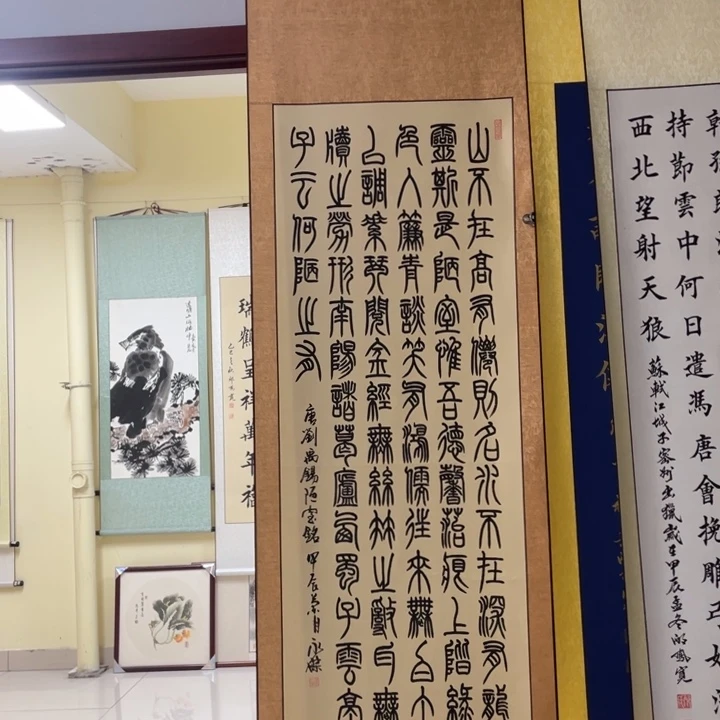 孫郎酒
持節雲中何日遣馮唐會挽雕弓如滿
西北望射天狼
蘇軾江城子密州出獵歲在甲辰孟冬
山不在高有僊則名水不在深有龍
靈斯是陋室惟吾德馨苔痕上階綠
色入簾青談笑有鴻儒往來無白丁
以調素琴閱金經無絲竹之亂耳無
牘之勞形南陽諸葛廬西蜀子雲亭
子云何陋之有
唐劉禹錫陋室銘 甲辰 月永
瑞鶴呈祥萬年福